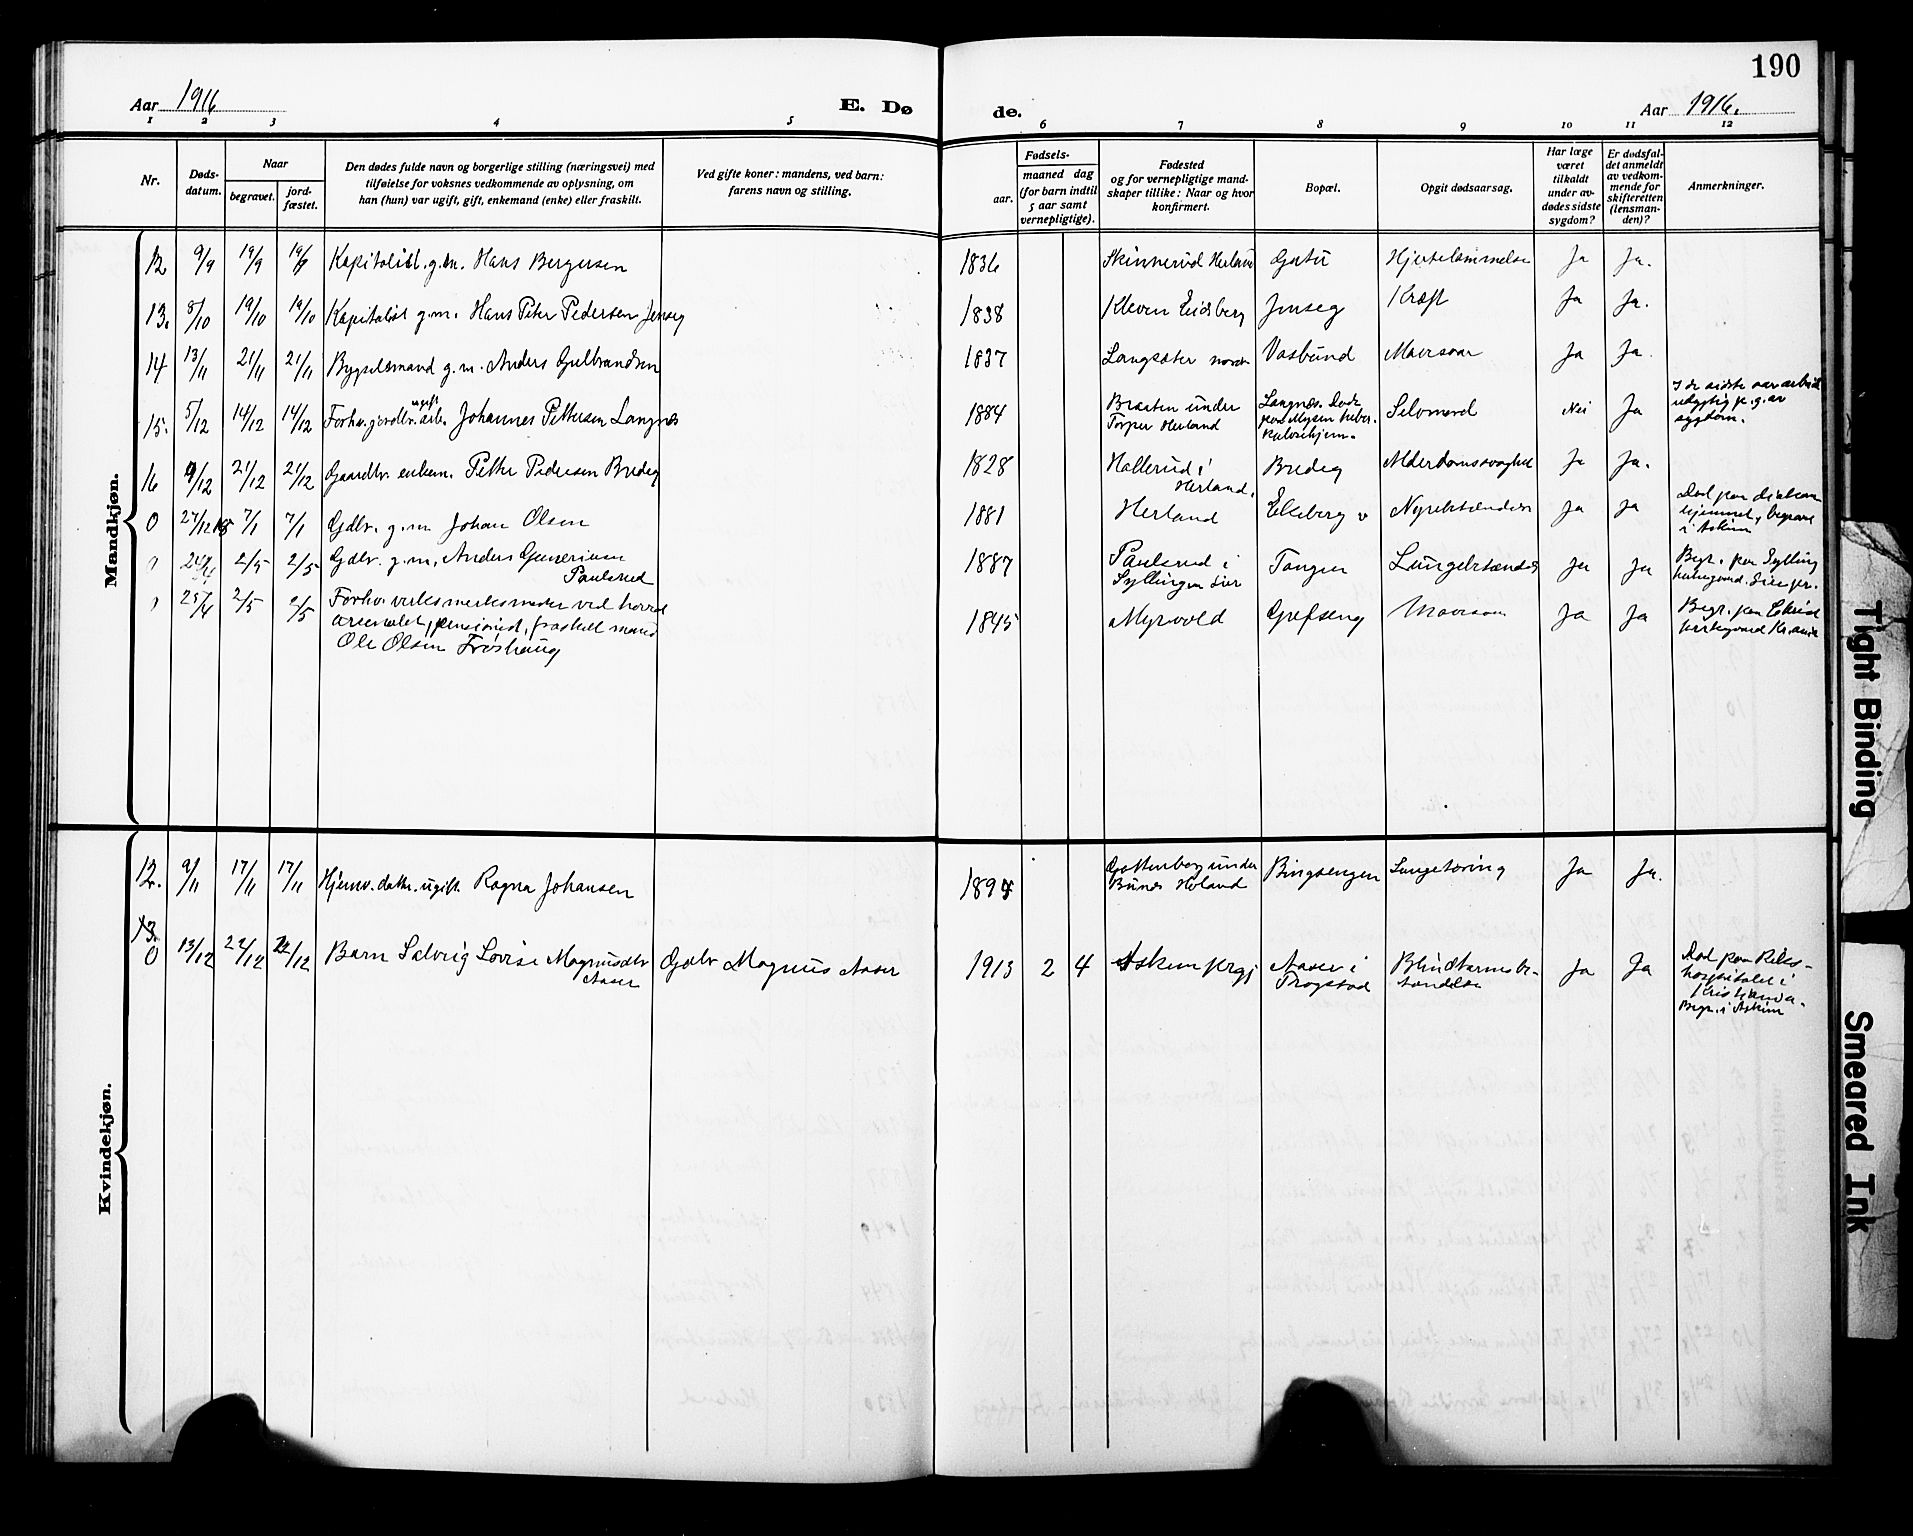 190
Aar 1916
E. Dø
de.
Aar 1916.
1 2 3 4 5 6 7 8 9 10 11 12
Nr.
Døds-
datum.
Naar
begravet.
jord-
fæstet.
Den dødes fulde navn og borgerlige stilling (næringsvei) med
tilføielse for voksnes vedkommende av oplysning, om
han (hun) var ugift, gift, enkemand (enke) eller fraskilt.
Ved gifte koner: mandens, ved barn:
farens navn og stilling.
Fødsels-
aar.
maaned dag
(for barn indtil
5 aar samt
vernepligtige).
Fødested
og for vernepligtige mand-
skaper tillike: Naar og hvor
konfirmert.
Bopæl.
Opgit dødsaarsag.
Har læge
været
tilkaldt
under av-
dødes sidste
sygdom?
Er dødsfal-
det anmeldt
av vedkom-
mende for
skifteretten
(lensman-
den)?
Anmerkninger.
Mandkjøn.
12 9/9 19/9 19/9 Kapitalist. g.m. Hans Bergersen 1836 Skinnerud Herland Hjertelammelse Ja Ja.
13. 8/10 19/10 19/10 Kapitalist g.m. Hans Peter Pedersen Jenseg 1838 Kleven Eidsberg Jenseg Kræft Ja Ja.
14 13/11 21/11 21/11 Bygselsmand g.m. Anders Gulbrandsen 1837 Langsæter nordre Marasme Ja Ja.
15. 5/12 14/12 14/12 ugift Johannes Pettersen Langnæs 1884 Braaten under
Torper Herland Langnæs. Døde
paa Mysen tuber-
kulosehjem. Selvmord Nei Ja I de sidste aar arbeids
udygtig p.g.av
sygdom.
16 9/12 21/12 21/12 Gaardbr. enkem. Petter Pedersen Bredeg 1828 Hallerud i
Herland. Bredeg Alderdomssvaghet Ja Ja.
0 27/12 15 7/1 7/1 Gdbr. g.m Johan Olsen 1881 Herland Ekeberg v Nyrebetændelse Ja Ja Død paa diakon
hjemmet, begravet
i Askim
24/4 2/5 2/5 Gdbr. g.m, Anders Gunerius
Paulsrud 1887 Paulsrud i
Syllingen Lier Tangen Lungebetændelse Ja Ja Begr. paa Sylling
kirkegaard. Lier pr.
25/4 2/5 2/5 Forhv. verksmester ved hoved
arsenalet, pensioned, fraskilt mand
Ole Olsen Frøshaug 1845 Myrvold Grefseng Marasme Ja Ja Begr. paa
kirkegaard Kr.ania
Kvindekjøn.
12. 9/11 17/11 17/11 Hjemv. datter. ugift. Ragna Johansen 1894 Gottenborg under
Bunes Høland Bingsengen Lungetæring Ja Ja.
13.
0 13/12 22/12 22/12 Barn Solveig Lovise Magnusdtr
Aaser Gdbr Magnus Aaser 1913 2 4 Askim prgj Aaser i
Trøgstad Blindtarmsbe-
tændelse Ja Ja Død paa Riks-
hospitalet i
Kristiania.
Begr. i Askim
Tight Binding
Smeared Ink